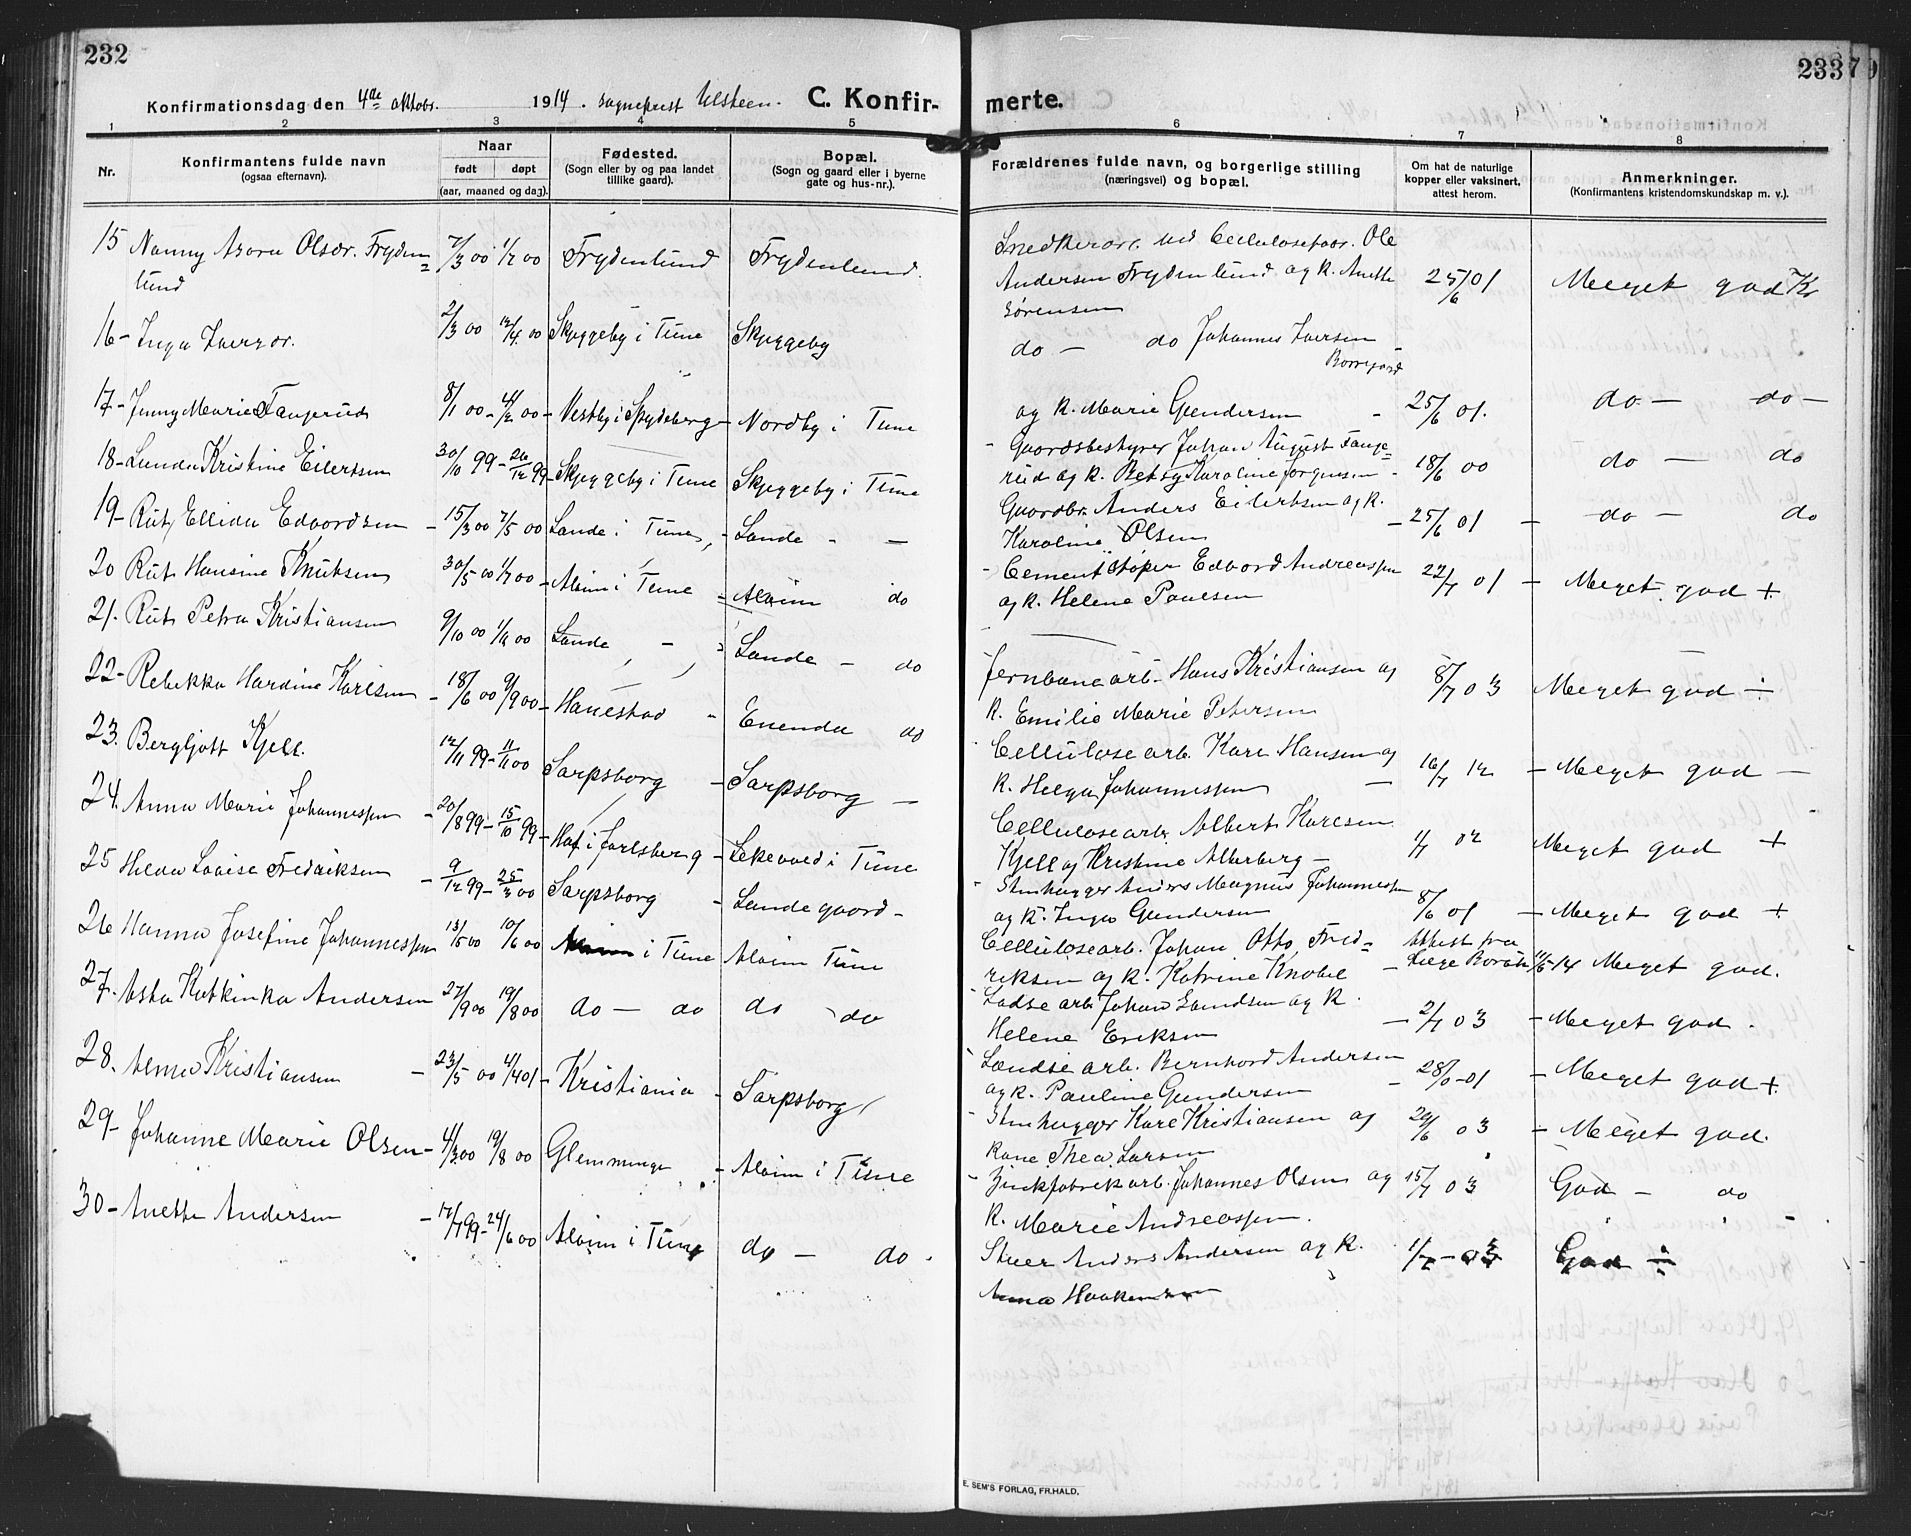 232
233
Konfirmationsdag den 4de oktobr. 1914. sogneprest Ulsteen. C. Konfirmerte.
1 2 3 4 5 6 7 8
Nr.
Konfirmantens fulde navn
(ogsaa efternavn).
Naar
født døpt
(aar, maaned og dag).
Fødested.
(Sogn eller by og paa landet
tillike gaard).
Bopæl.
(Sogn og gaard eller i byerne
gate og hus-nr.).
Forældrenes fulde navn, og borgerlige stilling
(næringsvei) og bopæl.
Om hat de naturlige
kopper eller vaksinert,
attest herom.
Anmerkninger.
(Konfirmantens kristendomskundskap m. v.).
15 Nanny Olsdr. Fryden=
lund
7/3 00 1/7 00 Frydenlund Frydenlund.
ved Cellulosefabr. Ole
Andersen Frydenlund og k. Anette
Sørensen
25/6 01 Meget god
16 - Inga Iversdr. 2/3 00 00 Skyggeby i Tune Skyggeby
do - do Johannes Iversen
Borregaard
og k. Marie Gundersen - 25/6 01. do - do -
17 - Jenny Marie Fangerud 8/1 00 - 4/2 00 - Vestby i Spydeberg - Nordby i Tune
- Gaardsbestyrer Johan August Fange=
rud og k. Betsy Karoline Jørgensen - 18/6 00 do - do
18 - Kristine Eilertsen 30/10 99 - 26/12 99 - Skyggeby i Tune Skyggeby i Tune
Gaardbr. Anders Eilertsen og k.
Karoline Olsen - 25/6 01 - do - do
19 - Rut Ellida Edvardsen - 15/3 00 7/5 00 Lande i Tune, - Lande - -
- Cementstøper Edvard Andreassen
og k. Helene Paulsen 22/7 01 - Meget god +
20 Rut Hansine Knutsen 30/5 00 1/7 00 - Alvim i Tune - Alvim do
21. Rut Petra Kristiansen 9/10 00 00 Lande Lande - do
Jernbanearb. Hans Kristiansen og
k. Emilie Marie Petersen 8/7 03 Meget god ÷
22 - Rebekka Hardine Karlsen - 18/6 00 9/9 00 - Hanestad Enenda do
Cellulosearb. Karl Hansen og
k. Helga Johannessen - 16/7 12 - Meget god -
23. Bergljott Kjell. 12/11 99 - 11/11 00 Sarpsborg - Sarpsborg -
Cellulosearb. Albert Karlsen
Kjell og Kristine Alberberg - 02 Meget god +
24. Anna Marie Johannessen - 20/8 99 - 15/10 99 - i Jarlsberg - Lekevold i Tune
- Stenhugger Anders Magnus Johannessen
og k. Inga Gundersen 8/6 01 - Meget god +
25 Hilda Lovise Fredriksen - 9/12 99 - 25/3 00 Sarpsborg - Lande gaard -
Cellulosearb. Johan Otto Fred=
riksen og k. Katrine Knobel - Attest fra
Læge 14 Meget god.
26 Hanna Josefine Johannessen 13/5 00 10/6 00 Alvim i Tune Alvim Tune
Lodse arb. Johan og k.
Helene Eriksen - 2/7 03 - Meget god.
27. Asta Katkinka Andersen 27/9 00 19/8 00 do - do do do
Landse arb. Bernhard Andersen
og k. Pauline Gundersen - 28/ 01 - Meget god +
28. Kristiansen - 23/5 00 4/4 01 - Kristiania - Sarpsborg
- Stenhugger Karl Kristiansen og
Kone Thea Larsen 20/6 03 - Meget god.
29 - Johanne Marie Olsen - 4/3 00 19/8 00 Glemminge - Alvim i Tune
- Zinkfabrikarb. Johannes Olsen og
k. Marie Andreassen. 15/7 03 God - do
30 - Anette Andersen - 17/7 99 - 24/6 00 Alvim i Tune do - do
Stuer Anders Andersen og k.
Anna Haakensen 1/7 - 03 God ÷
E. SEM'S FORLAG, FR.HALD.